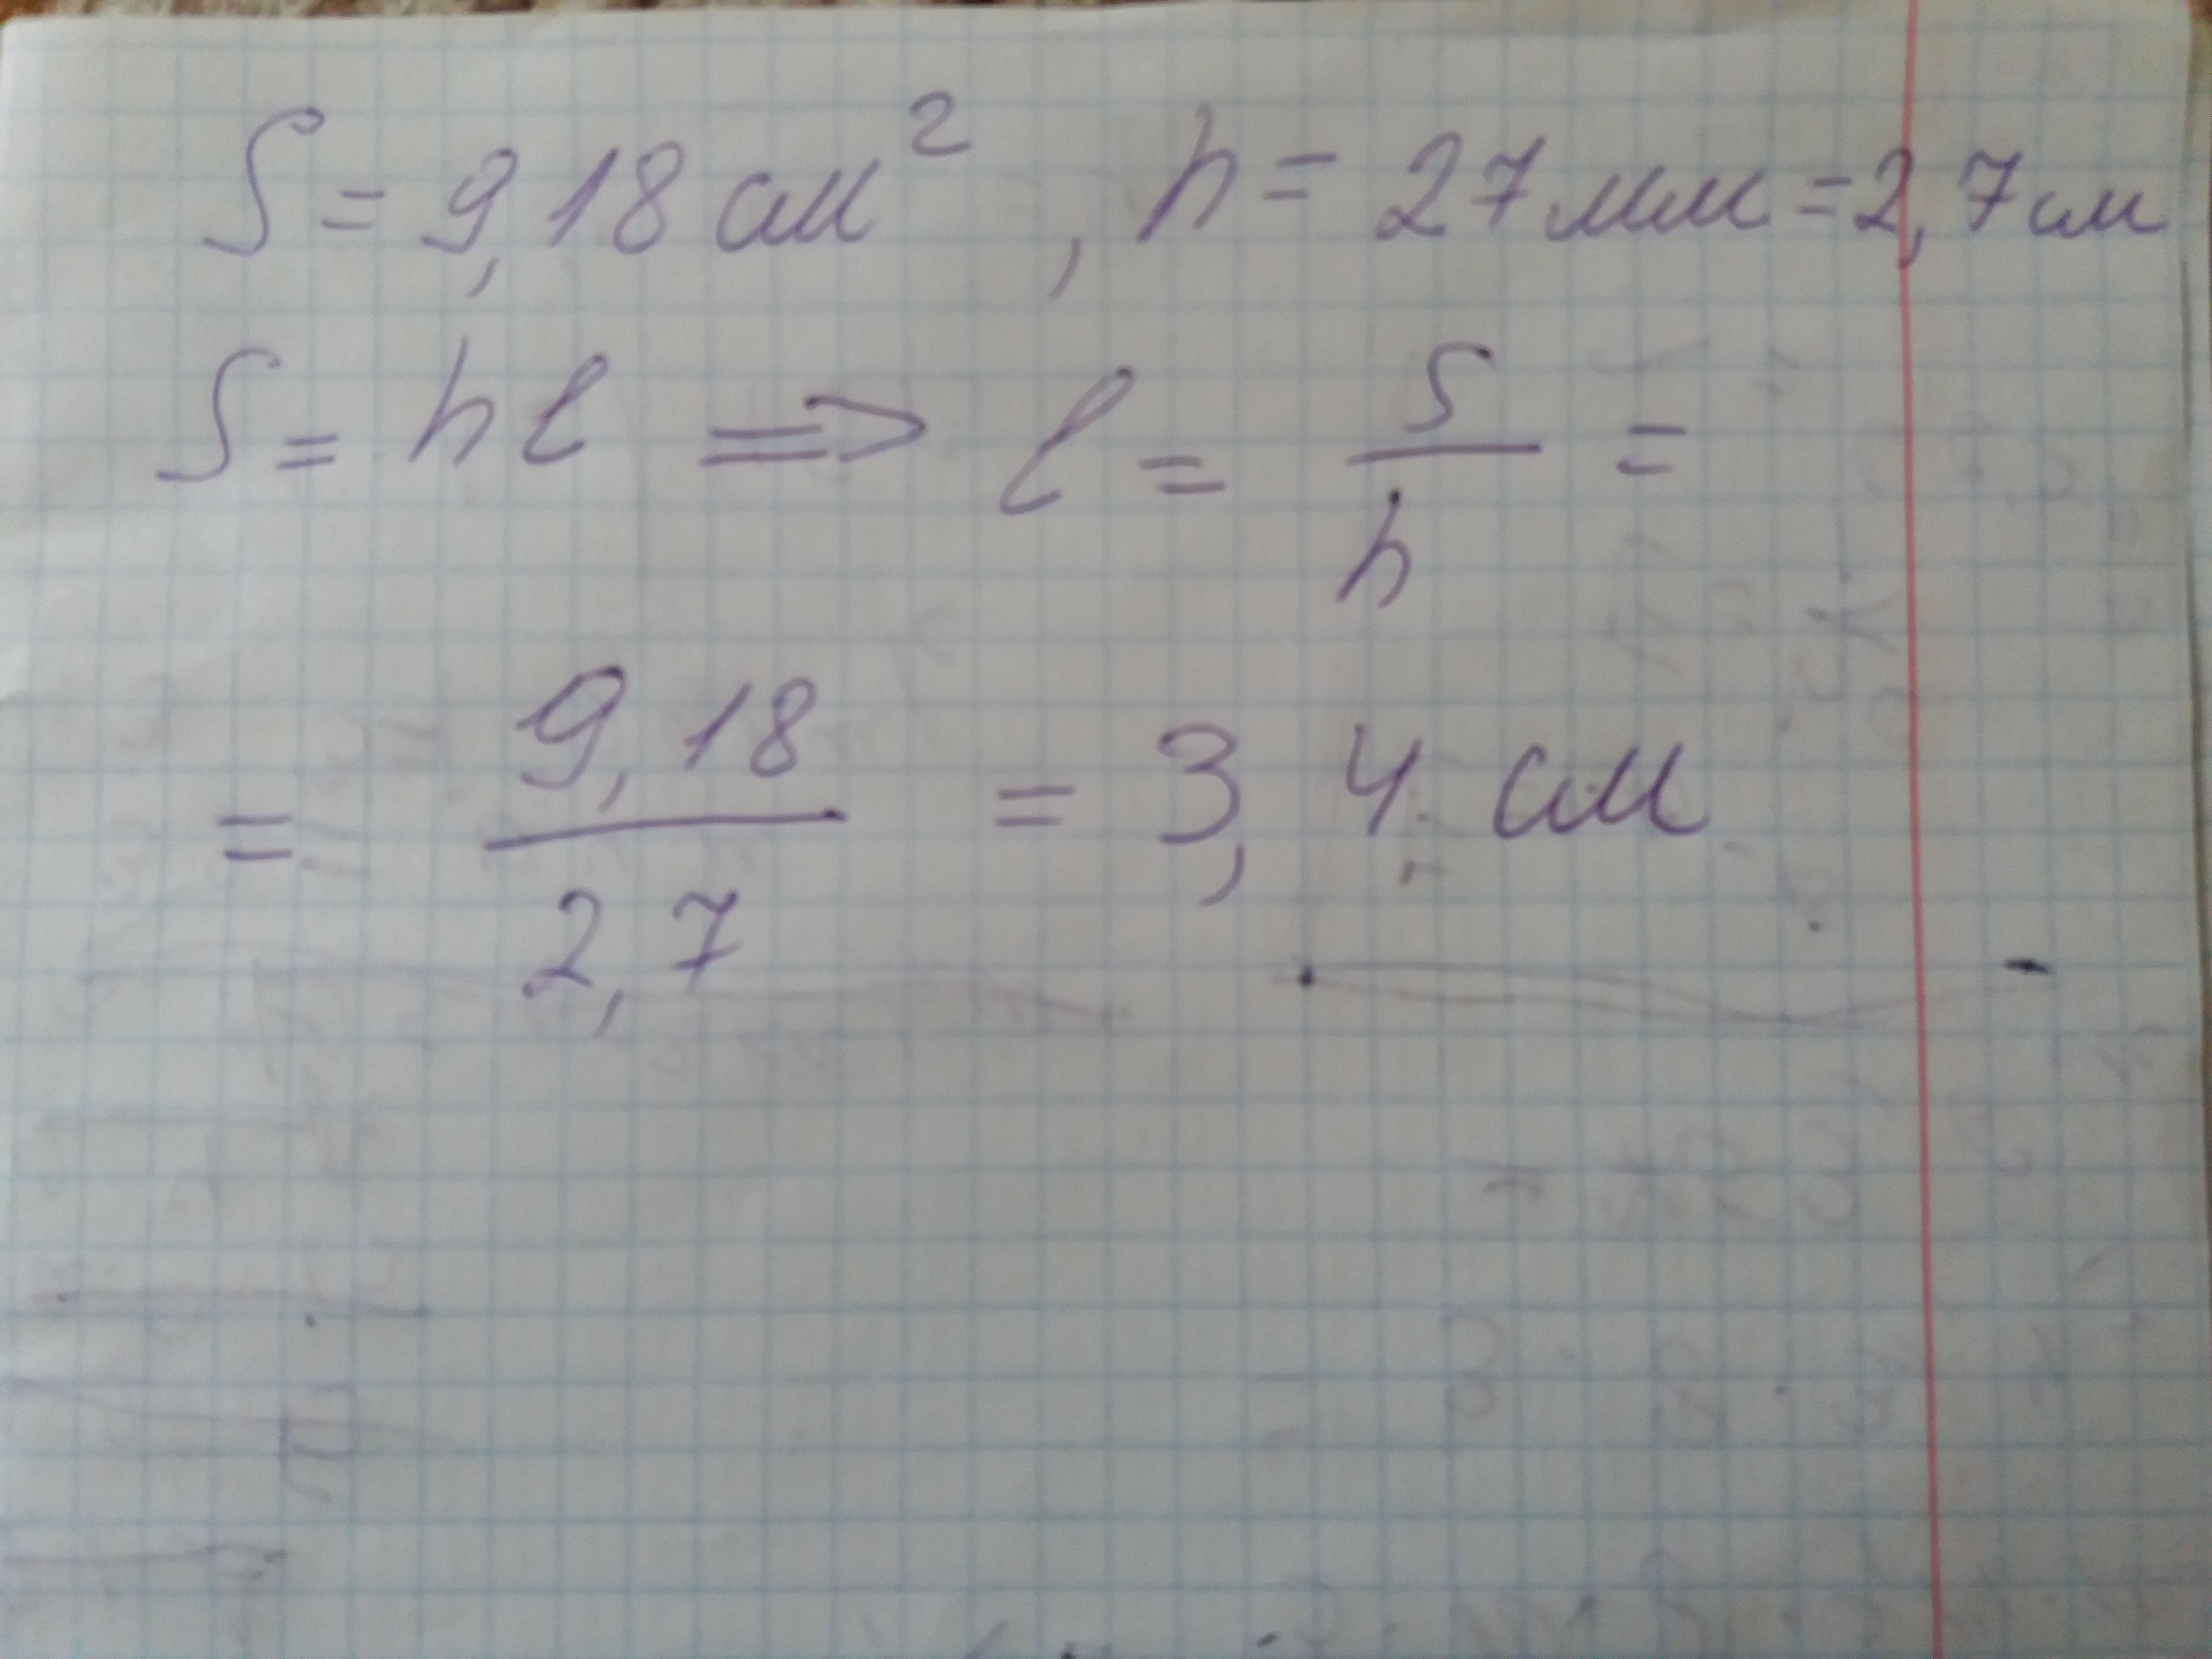 S = 9,18 см², h = 27 мм = 2,7 см
S = hl => l = S/h =
= 9,18/2,7 = 3,4 см